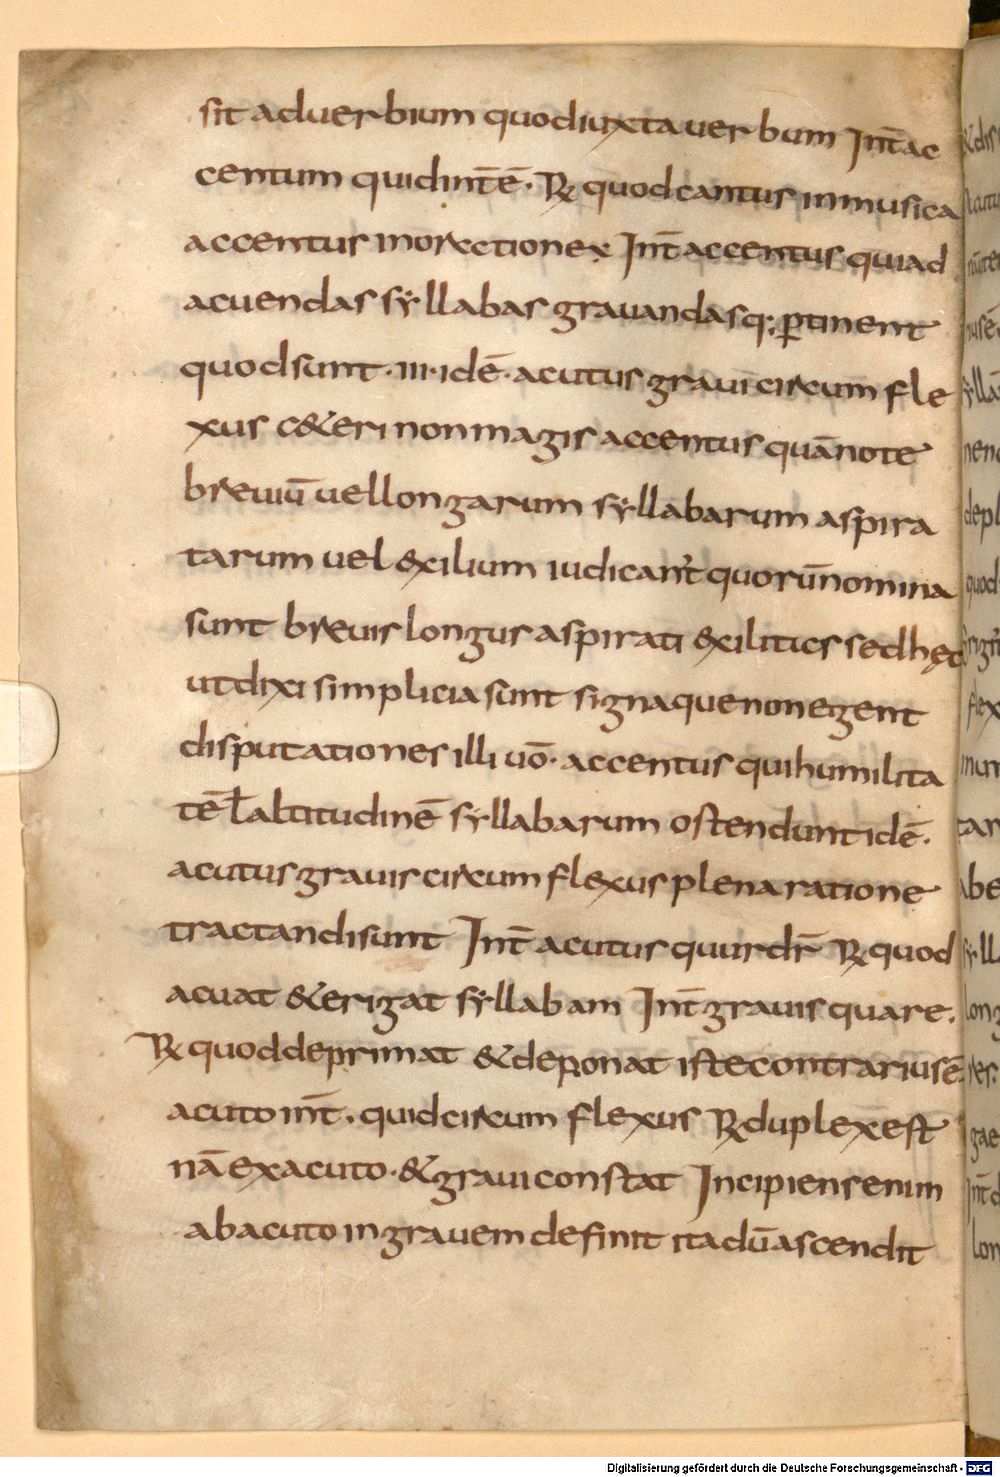 sit aduerbium quod iuxta uerbum Int̄ ac
centum quid int̄ ē · ℞ quod cantus in musica
accentus in orectione x Int̄ accentus qui ad
acuendas sẏllabas grauandasq; ꝑtinent
quod sunt · III · idē · acutus graui circum fle
xus c&eri non magis accentus quā note
breuiū uel longarum sẏllabarum aspira
tarum uel &xilium iudicant̉ quorū nomina
sunt breuis longus aspirati &xilitics sed hęc
ut dixi simplicia sunt signa que non egent
disputationes illi uō · accentus qui humilita
tē ł altitudinē sẏllabarum ostendunt idē ·
acutus grauis circum flexus plena ratione
tractandi sunt Int̄ acutus quur dr̄ ℞ quod
acuat & erigat sẏllabam Int̄ grauis quare .
℞ quod deprimat & deponat iste contrarius ē
acuto int̄ . quid circum flexus ℞ duplex est
nā ex acuto · & graui constat Incipiens enim
ab acuto in grauem definit ita dū ascendit
Digitalisierung gefördert durch die Deutsche Forschungsgemeinschaft - DFG